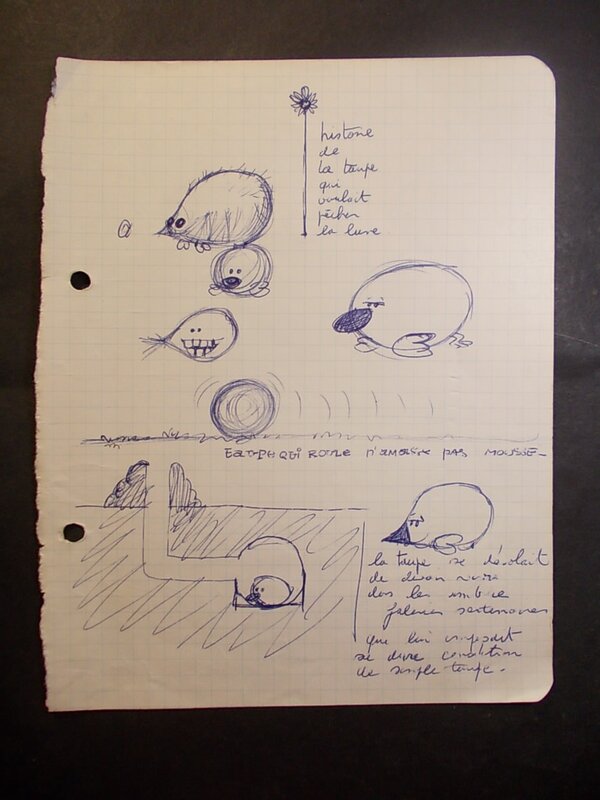 histoire
de
la taupe
qui
voulait
pêcher
la lune
QUI ROULE N'AMASSE PAS MOUSSE-
la taupe se désolait
de devoir vivre
dans les sombres
galeries souterraines
que lui imposait
sa dure condition
de simple taupe.